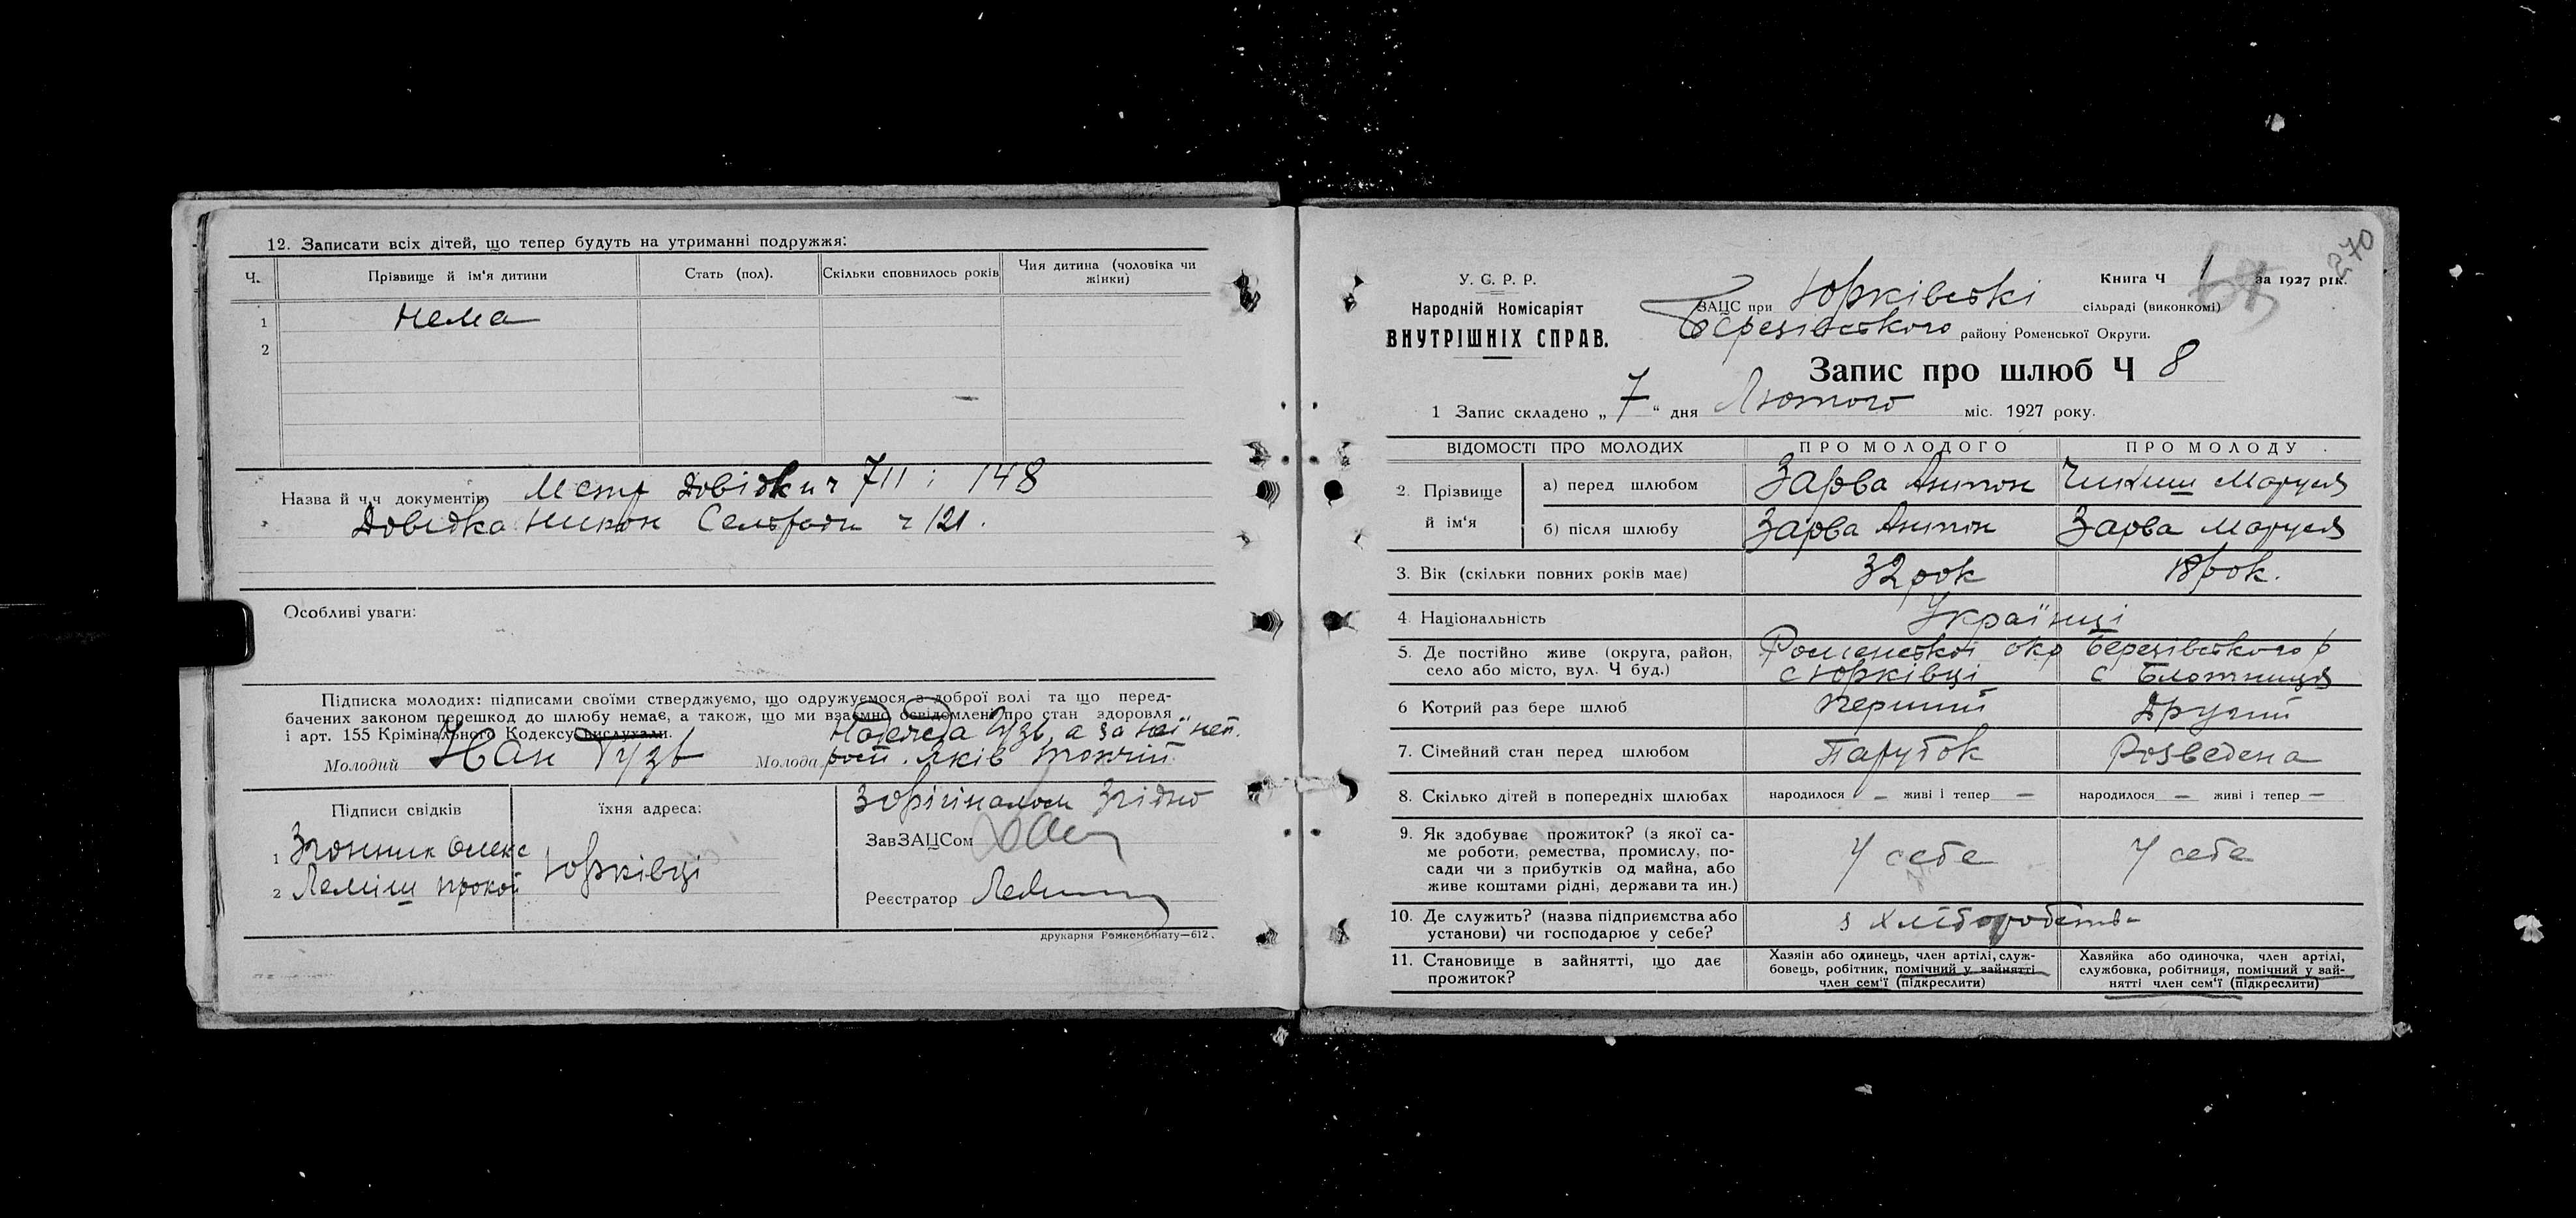 12. Записати всіх дітей, що тепер будуть на утриманні подружжя:
Ч. Прізвище й ім'я дитини Стать (пол). Скільки сповнилось років Чия дитина (чоловіка чи жінки)
1 Нема
2
Назва й ч.ч документів Метр Довідки ч 711 і 148
Довідка Сельради ч 121.
Особливі уваги:
Підписка молодих: підписами своїми стверджуємо, що одружуємося з доброї волі та що перед-
бачених законом перешкод до шлюбу немає, а також, що ми взаємно освідомлені про стан здоровля
і арт. 155 Крімінального Кодексу вислухали.
Молодий Іван Гузь Молода Надежда Гузь, а за неї неп.
Яків
Підписи свідків їхня адреса: З орігіналом Згідно
ЗавЗАЦСом
1 Згонник Олекс Юрківці
2 Леміш Прокоп
Реєстратор
друкарня Ромкомбінату—612.
270
У. С. Р. Р.
Народній Комісаріят
ВНУТРІШНІХ СПРАВ.
Книга Ч 1 за 1927 рік.
ЗАЦС при Юрківські сільраді (виконкомі)
Березівського району Роменської Округи.
Запис про шлюб Ч 8
1 Запис складено „ 7 “ дня Лютого міс. 1927 року.
ВІДОМОСТІ ПРО МОЛОДИХ ПРО МОЛОДОГО ПРО МОЛОДУ
2. Прізвище й ім'я а) перед шлюбом Зарва Антон Маруся
б) після шлюбу Зарва Антон Зарва Маруся
3. Вік (скільки повних років має) 32 рок 18 рок.
4 Національність Українці
5. Де постійно живе (округа, район, Роменської окр Березівського р
село або місто, вул. Ч буд.) с Юрківці с Блотниця
6 Котрий раз бере шлюб перший Другий
7. Сімейний стан перед шлюбом Парубок Розведена
8. Скілько дітей в попередніх шлюбах народилося — живі і тепер — народилося — живі і тепер —
9. Як здобуває прожиток? (з якої са-
ме роботи, ремества, промислу, по-
сади чи з прибутків од майна, або
живе коштами рідні, держави та ин.) У себе У себе
10. Де служить? (назва підприємства або
установи) чи господарює у себе? з хліборобства
11. Становище в зайнятті, що дає
прожиток?
Хазяін або одинець, член артілі, служ-
бовець, робітник, помічний у зайнятті
член сем'ї (підкреслити)
Хазяйка або одиночка, член артілі,
службовка, робітниця, помічний у зай-
нятті член сем'ї (підкреслити)